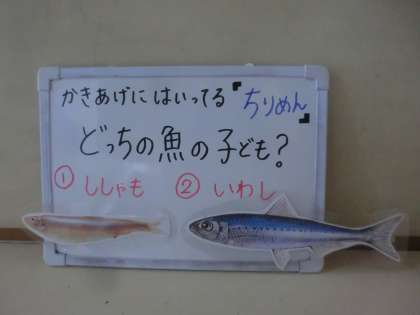 かきあげに はいってる『ちりめん』
どっちの魚の子ども?
① ししゃも ② いわし